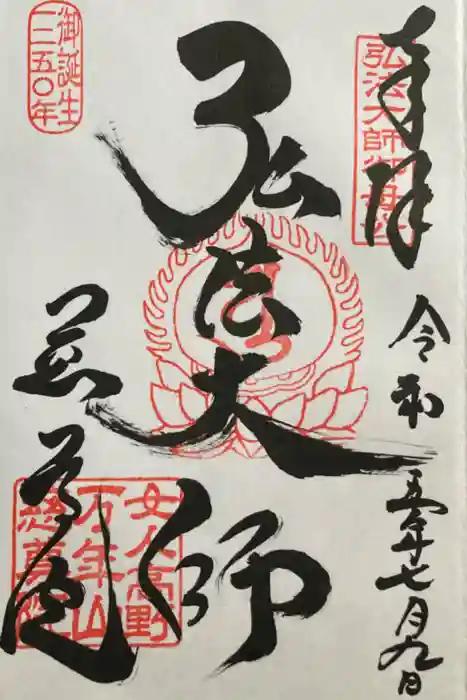 奉拝
弘法大師御母公
令和五年七月九日
弘法大師
慈尊院
御誕生
一二五〇年
女人高野
万年山
慈尊院